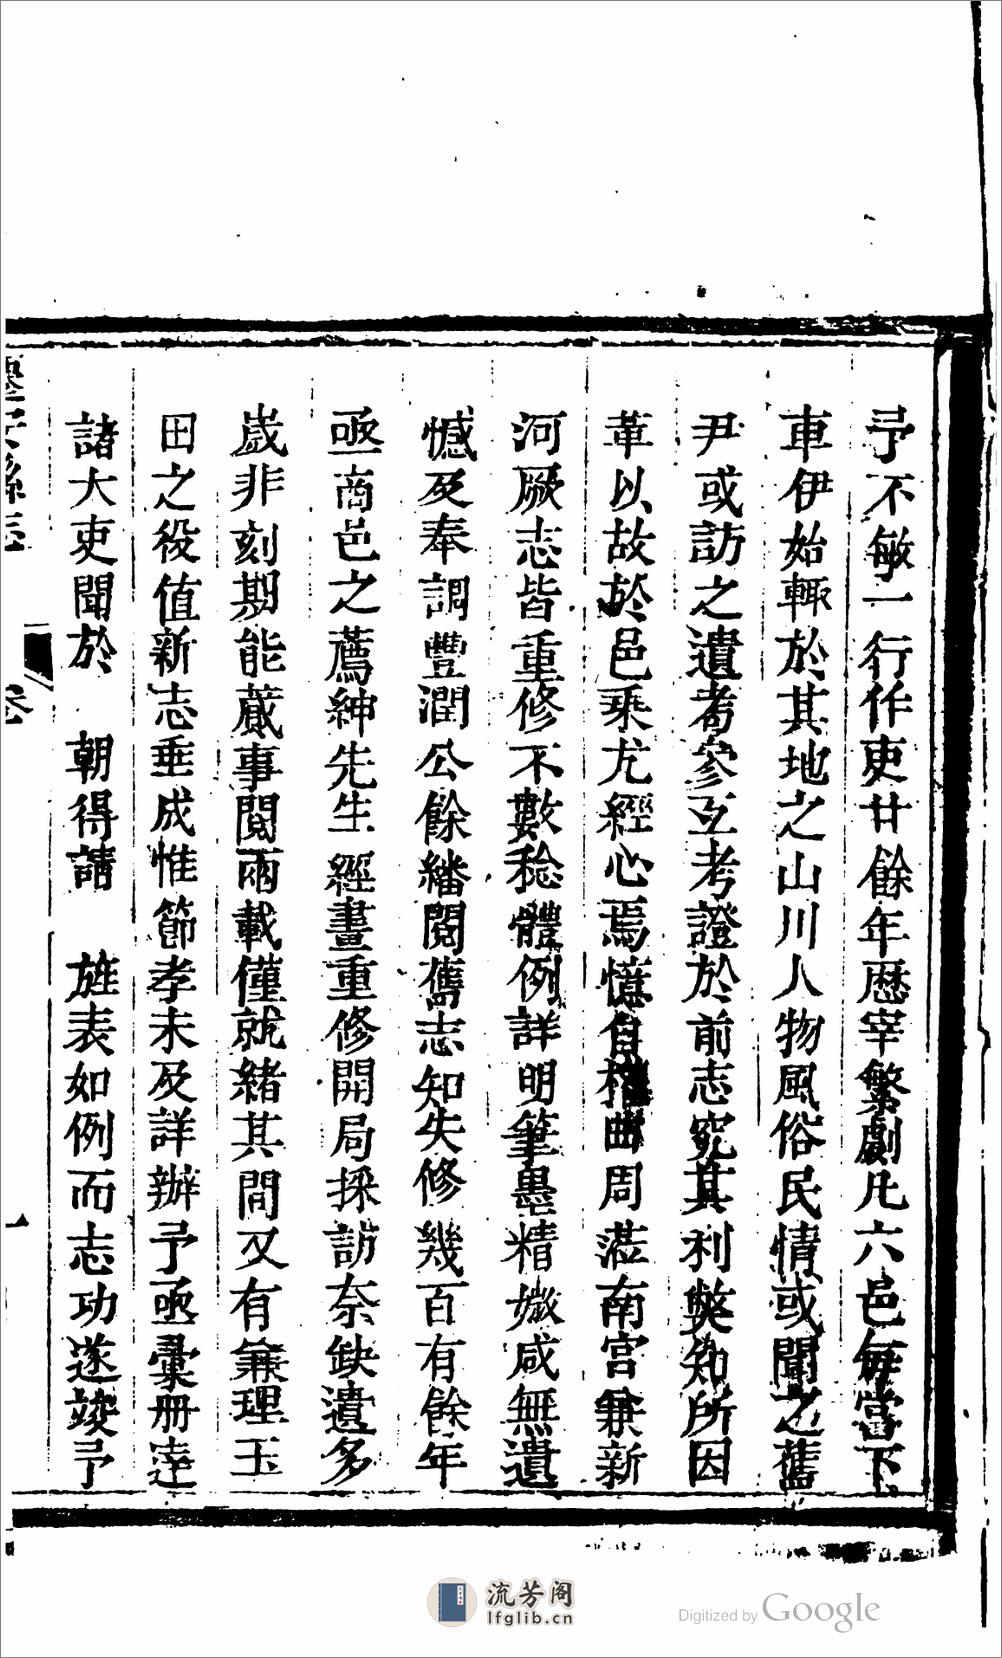 予不敏一行作吏廿餘年歷宰繁劇凡六邑每當下
車伊始輒於其地之山川人物風俗民情或聞之舊
尹或訪之遺耇參互考證於前志究其利弊知所因
革以故於邑乘尤經心焉憶自曲周涖南宮兼新
河厥志皆重修不數稔體例詳明筆墨精嫩咸無遺
憾及奉調豐潤公餘繙閱舊志知失修幾百有餘年
亟商邑之薦紳先生經畫重修開局採訪奈缺遺多
歲非刻期能蕆事閱兩載僅就緒其間又有兼理玉
田之役值新志垂成惟節孝未及詳辦予亟彙冊達
諸大吏聞於 朝得請 旌表如例而志功遂竣予
縣志
卷
一
流芳阁
lfglib.cn
Digitized by Google